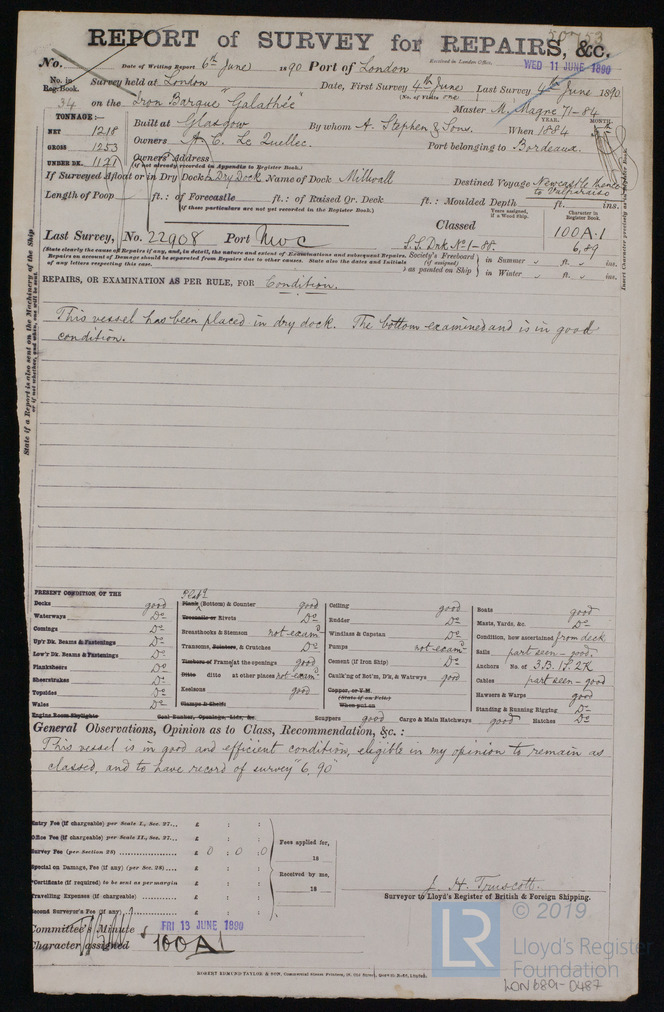 50753
REPORT of SURVEY for REPAIRS, &c.
No. Date of Writing Report 6th June 1890 Port of London Received in London Office, WED 11 JUNE 1890
No. in Reg. Book. Survey held at London Date, First Survey 4th June Last Survey 4th June 1890
(No. of Visits one)
34 on the Iron Barque "Galathée" Master M. Magré 71-84
TONNAGE:— YEAR. MONTH.
NET 1218 Built at Glasgow By whom A. Stephen & Sons. When 1884
GROSS 1253 Owners A. C. Le Quellec. Port belonging to Bordeaux.
UNDER DK. 1171 Owners' Address
(if not already recorded in Appendix to Register Book.)
If Surveyed Afloat or in Dry Dock In Dry Dock Name of Dock Millwall Destined Voyage Newcastle thence to Valparaiso
Length of Poop ft.: of Forecastle ft.: of Raised Qr. Deck ft.: Moulded Depth ft. ins.
(If these particulars are not yet recorded in the Register Book.)
Years assigned, if a Wood Ship. Character in Register Book.
Last Survey, No. 22908 Port Nwc Classed 100A.1
S.S. Drk No 1-88. 6,89
(State clearly the cause of Repairs if any, and, in detail, the nature and extent of Examinations and subsequent Repairs.
Repairs on account of Damage should be separated from Repairs due to other causes. State also the dates and Initials
of any letters respecting this case.
Society's Freeboard (if assigned) as painted on Ship in Summer ft. ins.
in Winter ft. ins.
Insert Character precisely as in the Register Book.
State if a Report is also sent on the Machinery of the Ship
REPAIRS, OR EXAMINATION AS PER RULE, FOR Condition.
This vessel has been placed in dry dock. The bottom examined and is in good
condition.
PRESENT CONDITION OF THE
Decks good
Waterways Do
Comings Do
Up'r Dk. Beams & Fastenings Do
Low'r Dk. Beams & Fastenings Do
Planksheers Do
Sheerstrakes Do
Topsides Do
Wales Do
Engine Room Skylights
Plates
Plank (Bottom) & Counter good
Treenails or Rivets Do
Breasthooks & Stemson not examd
Transoms, Pointers, & Crutches Do
Timbers of Frame at the openings good
Ditto ditto at other places not examd
Keelsons good
Clamps & Shelfs
Coal Bunker, Openings, Lids, &c.
Ceiling good
Rudder Do
Windlass & Capstan Do
Pumps not examd
Cement (if Iron Ship) Do
Caulk'ng of Bot'm, D'k, & Watrwys good
Copper, or Y.M.
(State if on Felt)
When put on
Scuppers good Cargo & Main Hatchways good Hatches Do
Boats good
Masts, Yards, &c. Do
Condition, how ascertained from deck
Sails part seen - good.
Anchors No. of 3.B. 1S. 2K
Cables part seen - good
Hawsers & Warps good
Standing & Running Rigging Do
General Observations, Opinion as to Class, Recommendation, &c. :
This vessel is in good and efficient condition, eligible in my opinion to remain as
classed, and to have record of survey "6, 90"
Entry Fee (if chargeable) per Scale I., Sec. 27... £ : :
Office Fee (if chargeable) per Scale II., Sec. 27... £ : :
Survey Fee (per Section 28) £ 0 : 0 : 0
Special on Damage, Fee (if any) (per Sec. 28) £ : :
*Certificate (if required) to be sent as per margin £ : :
Travelling Expenses (if chargeable) £ : :
Second Surveyor's Fee (if any) £ : :
Fees applied for,
18
Received by me,
18
J. H. Truscott.
Surveyor to Lloyd's Register of British & Foreign Shipping.
Committee's Minute FRI 13 JUNE 1890
Character assigned 100A1
ROBERT EDMUND TAYLOR & SON, Commercial Steam Printers, 19, Old Street, Goswell Road, London.
LR
© 2019
Lloyd's Register
Foundation
LON 680.1-0487